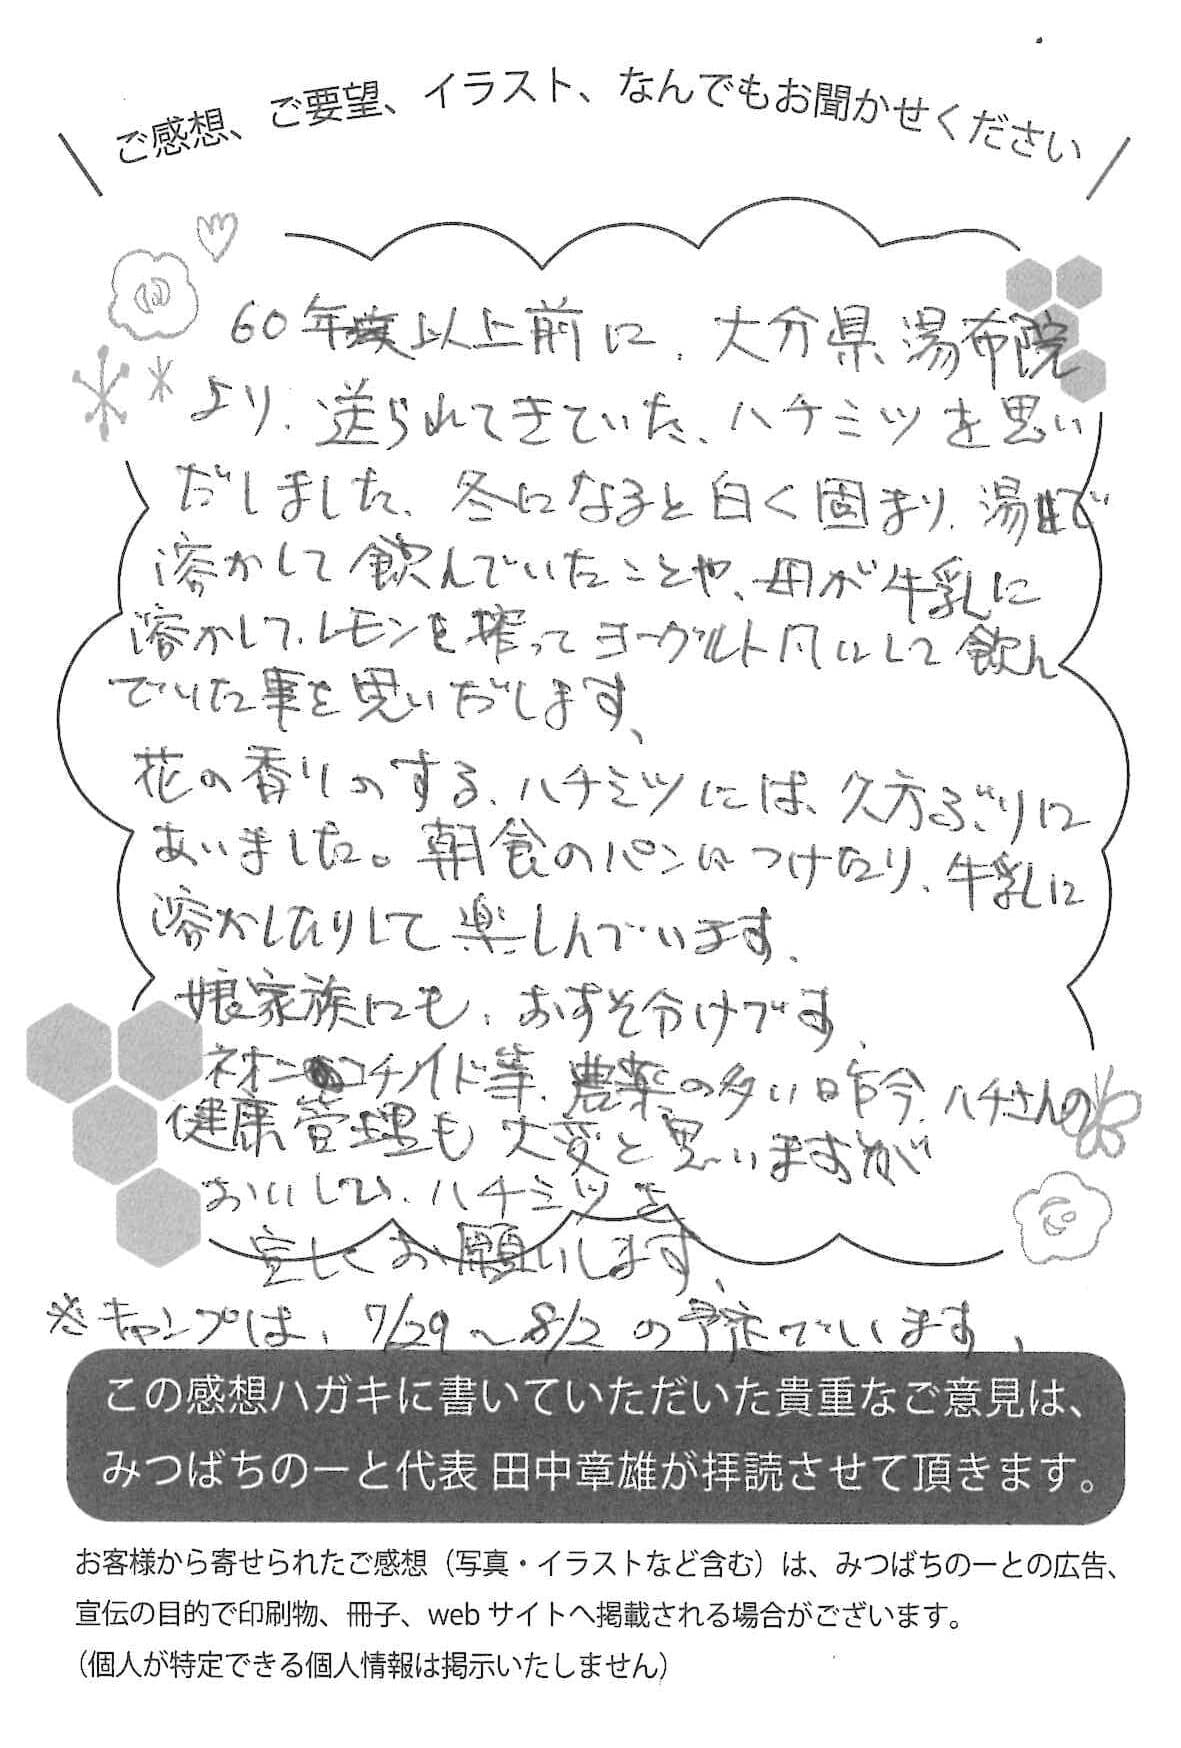 ご感想、ご要望、イラスト、なんでもお聞かせください
60年以上前に、大分県湯布院
より、送られてきていた、ハチミツを思い
だしました、冬になると白く固まり、湯で
溶かして飲んでいたことや、母が牛乳に
溶かして、レモンを搾ってヨーグルト风にして飲ん
でいた事を思いだします、
花の香りのする、ハチミツには、久方ぶりに
あいました。朝食のパンにつけたり、牛乳に
溶かしたりして楽しんでいます、
娘家族にも、おすそ分けです、
ネオニコチノイド等、農薬の多い昨今、ハチさんの
健康管理も大変と思いますが
おいしい、ハチミツを
宜しくお願いします、
※キャンプは、7/29〜8/2の予定でいます、
この感想ハガキに書いていただいた貴重なご意見は、
みつばちのーと代表 田中章雄が拝読させて頂きます。
お客様から寄せられたご感想（写真・イラストなど含む）は、みつばちのーとの広告、
宣伝の目的で印刷物、冊子、web サイトへ掲載される場合がございます。
（個人が特定できる個人情報は掲示いたしません）